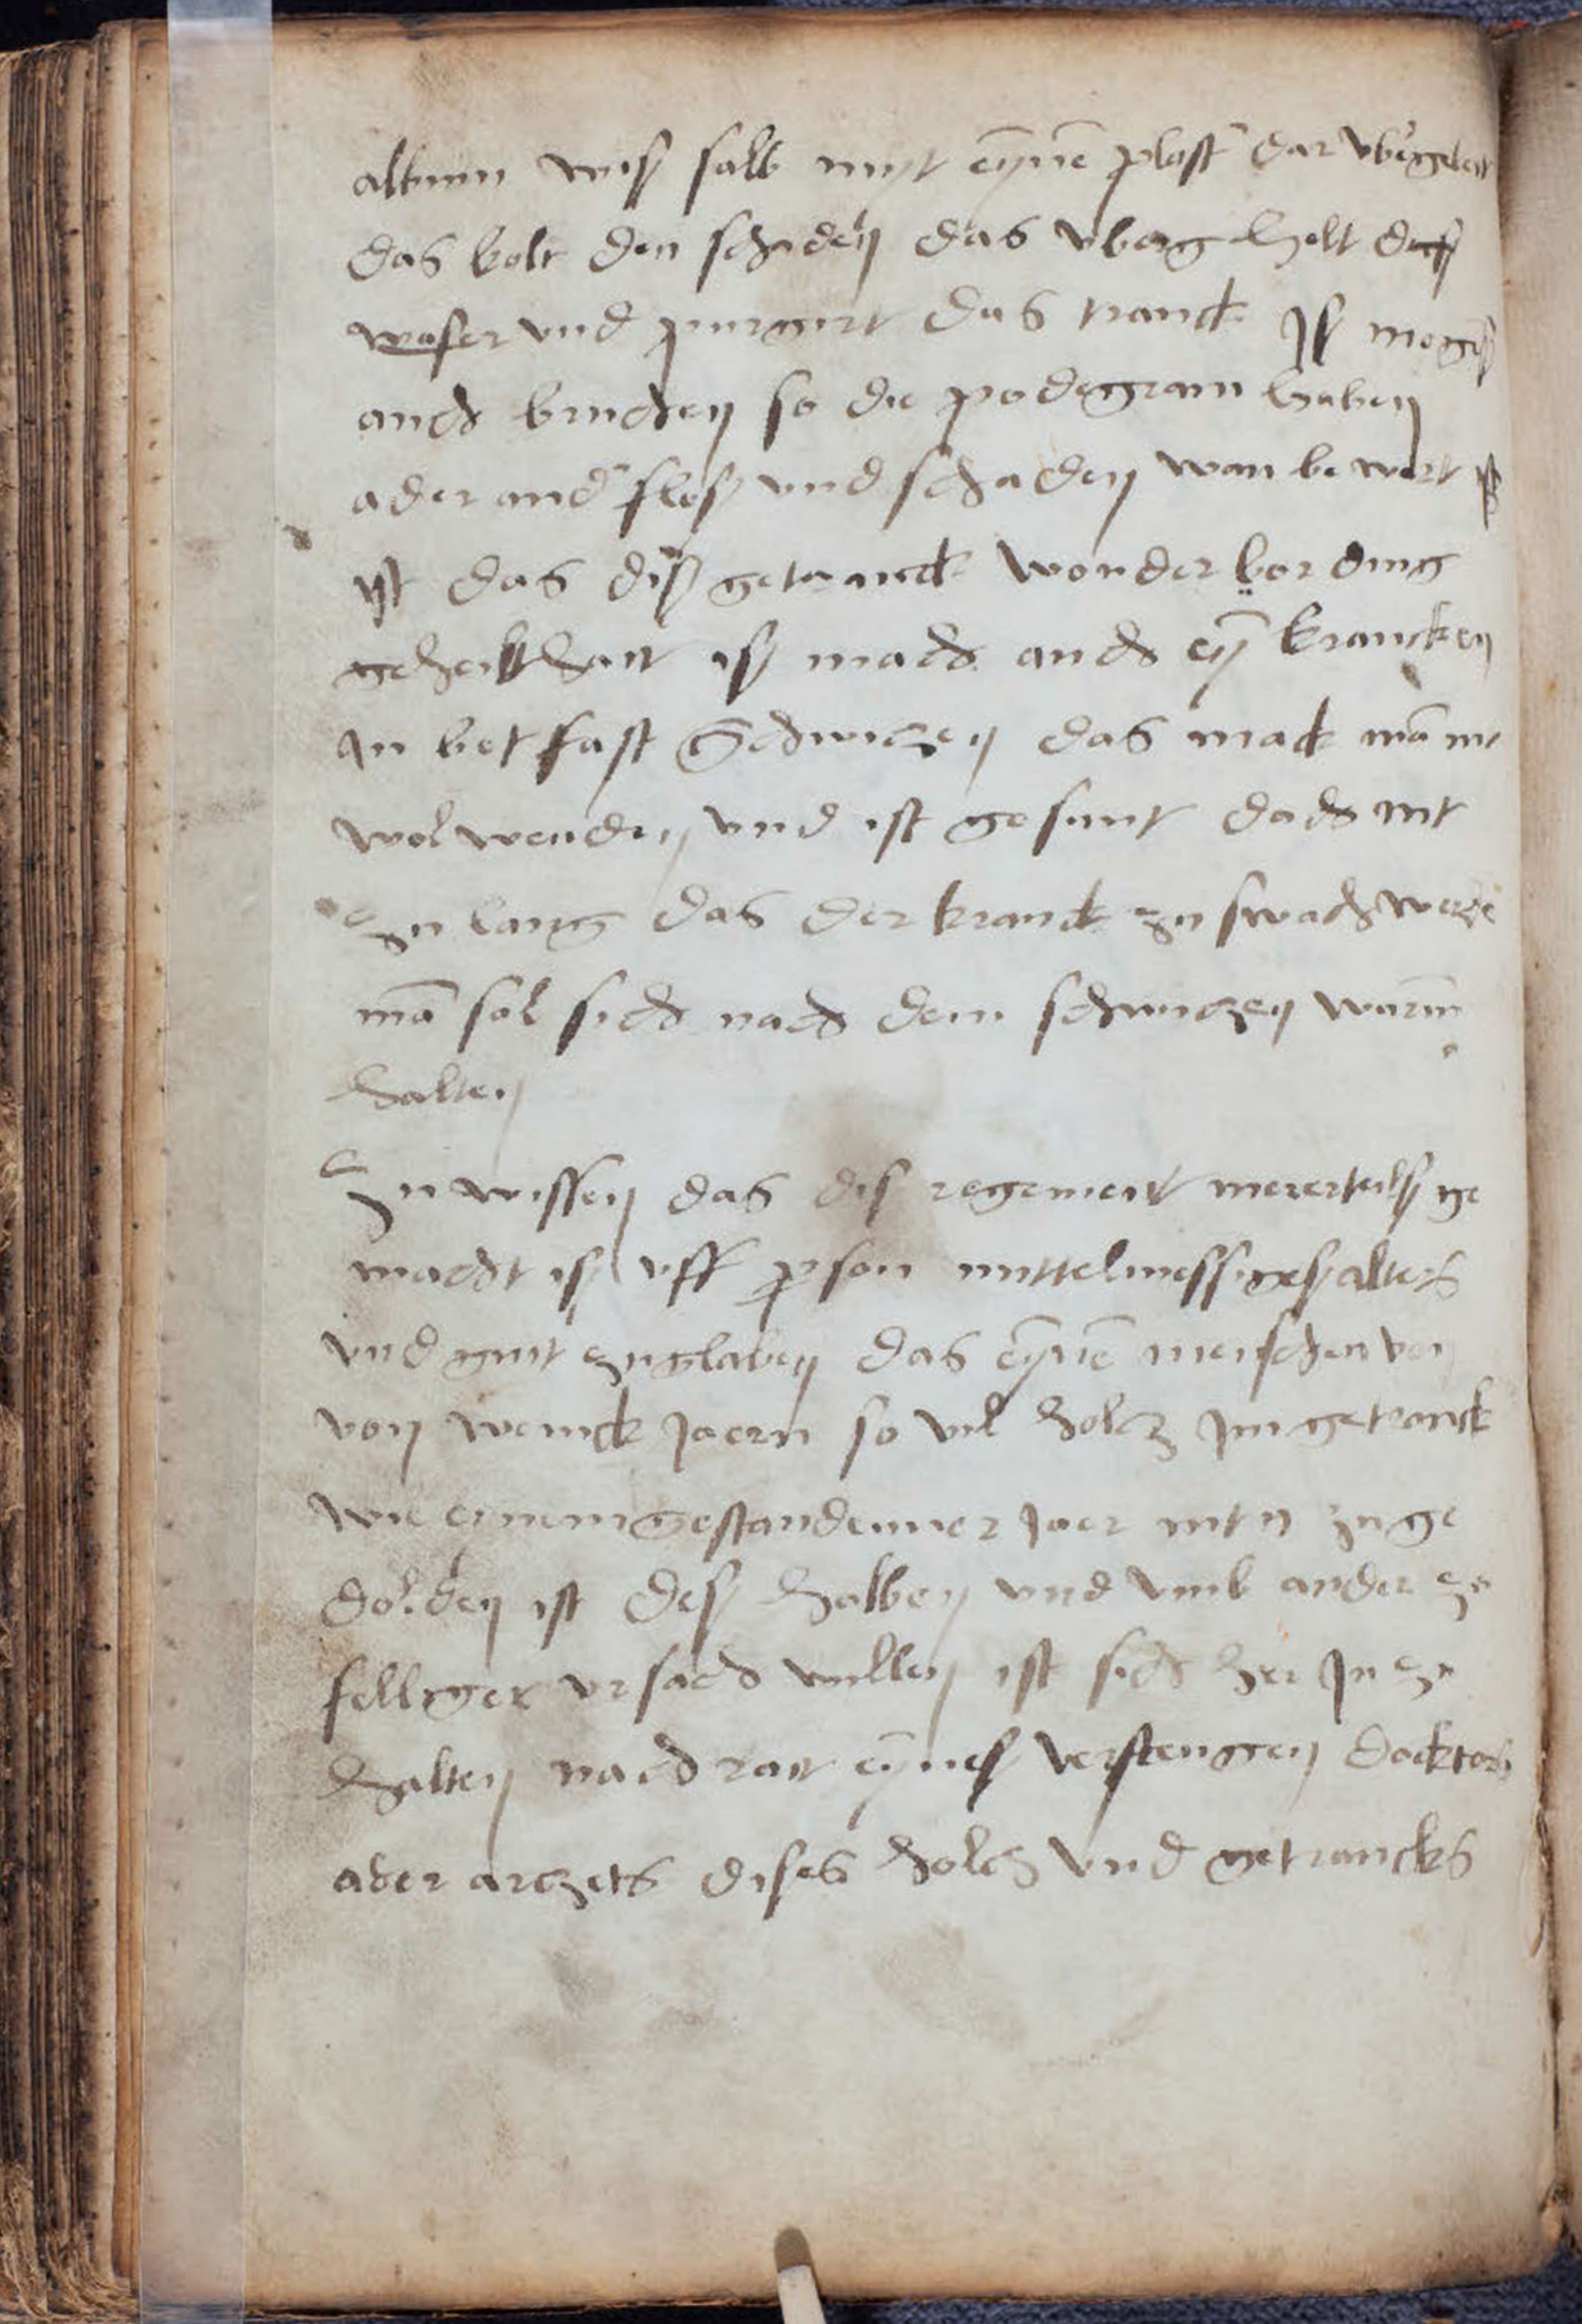 album wiß salb myt eyne plast dar vbergeleit
das kolt den schaden das vberg helt das
waser vnd purgirt das tranck Jß mogen
auch bruchen so die podegram haben
ader and floß vnd schaden wan bewert
yst das diß getranck wonderbar ding
geheilt hait iß mach auch eyn krancken
Jn bet fast schwiczen das mack man
wol wenden vnd ist gesunt doch nit
zu lang das der kranck zu swach werde
man sol sich nach dem schwiczen warm
halten
Zu wissen das dis regement mererteilß ge
macht iß vff person mittelmessiges alters
vnd gut zuglaben das eyne menschen von
von wenick Jaern so vil holcz Jm getranck
wie eynem gestandenner Jaer nit zu ge
dolden ist deß halben vnd vmb ander zu
felliger vrsach willen ist sich her Jn zu
halten nach rait eynes verstengen docktors
ader arczets dises holcz vnd getrancks